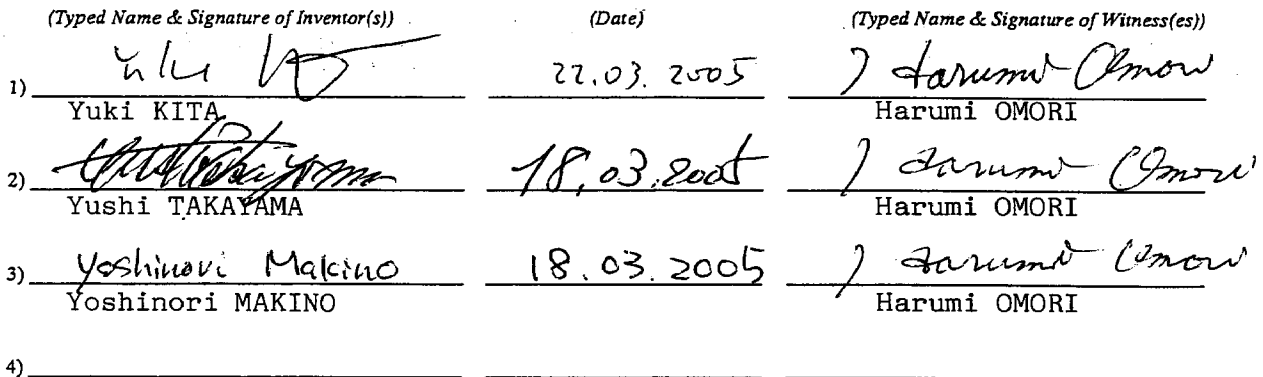 (Typed Name & Signature of Inventor(s)) (Date) (Typed Name & Signature of Witness(es))
1) 22.03.2005 Harumi Omori
Yuki KITA Harumi OMORI
2) Takayama 18.03.2005 Harumi Omori
Yushi TAKAYAMA Harumi OMORI
3) Yoshinori Makino 18.03.2005 Harumi Omori
Yoshinori MAKINO Harumi OMORI
4)